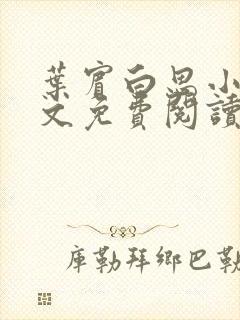 葉甯白思小
文免費閱讀
庫勒拜鄉巴勒